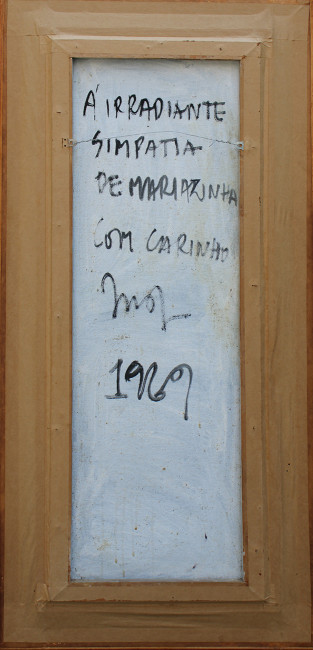 À IRRADIANTE
SIMPATIA
DE MARIAZINHA
COM CARINHO
1969